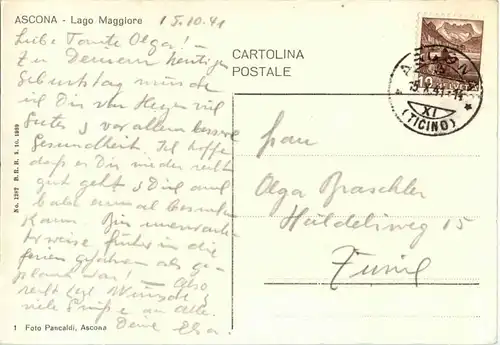 ASCONA - Lago Maggiore
15.10.41
Liebe Tante Olga! –
Zu Deinem heutigen
Geburtstag wünsche
ich Dir von Herzen viel
Gutes & vor allem bessere
Gesundheit. Ich hoffe
dass es Dir wieder recht
gut geht & Dich
bald einmal besuchen
kann. Bin unerwarte-
terweise früher in die
Ferien gefahren als ge-
plant war! – Also
recht
viele Grüsse an alle.
Deine Elsa.
CARTOLINA
POSTALE
ASCONA
15.X.41-14
XI
(TICINO)
Frau
Olga Braschler
Huldeliweg 15
No. 1287 B.R.B. 3. 10. 1939
1 Foto Pancaldi, Ascona